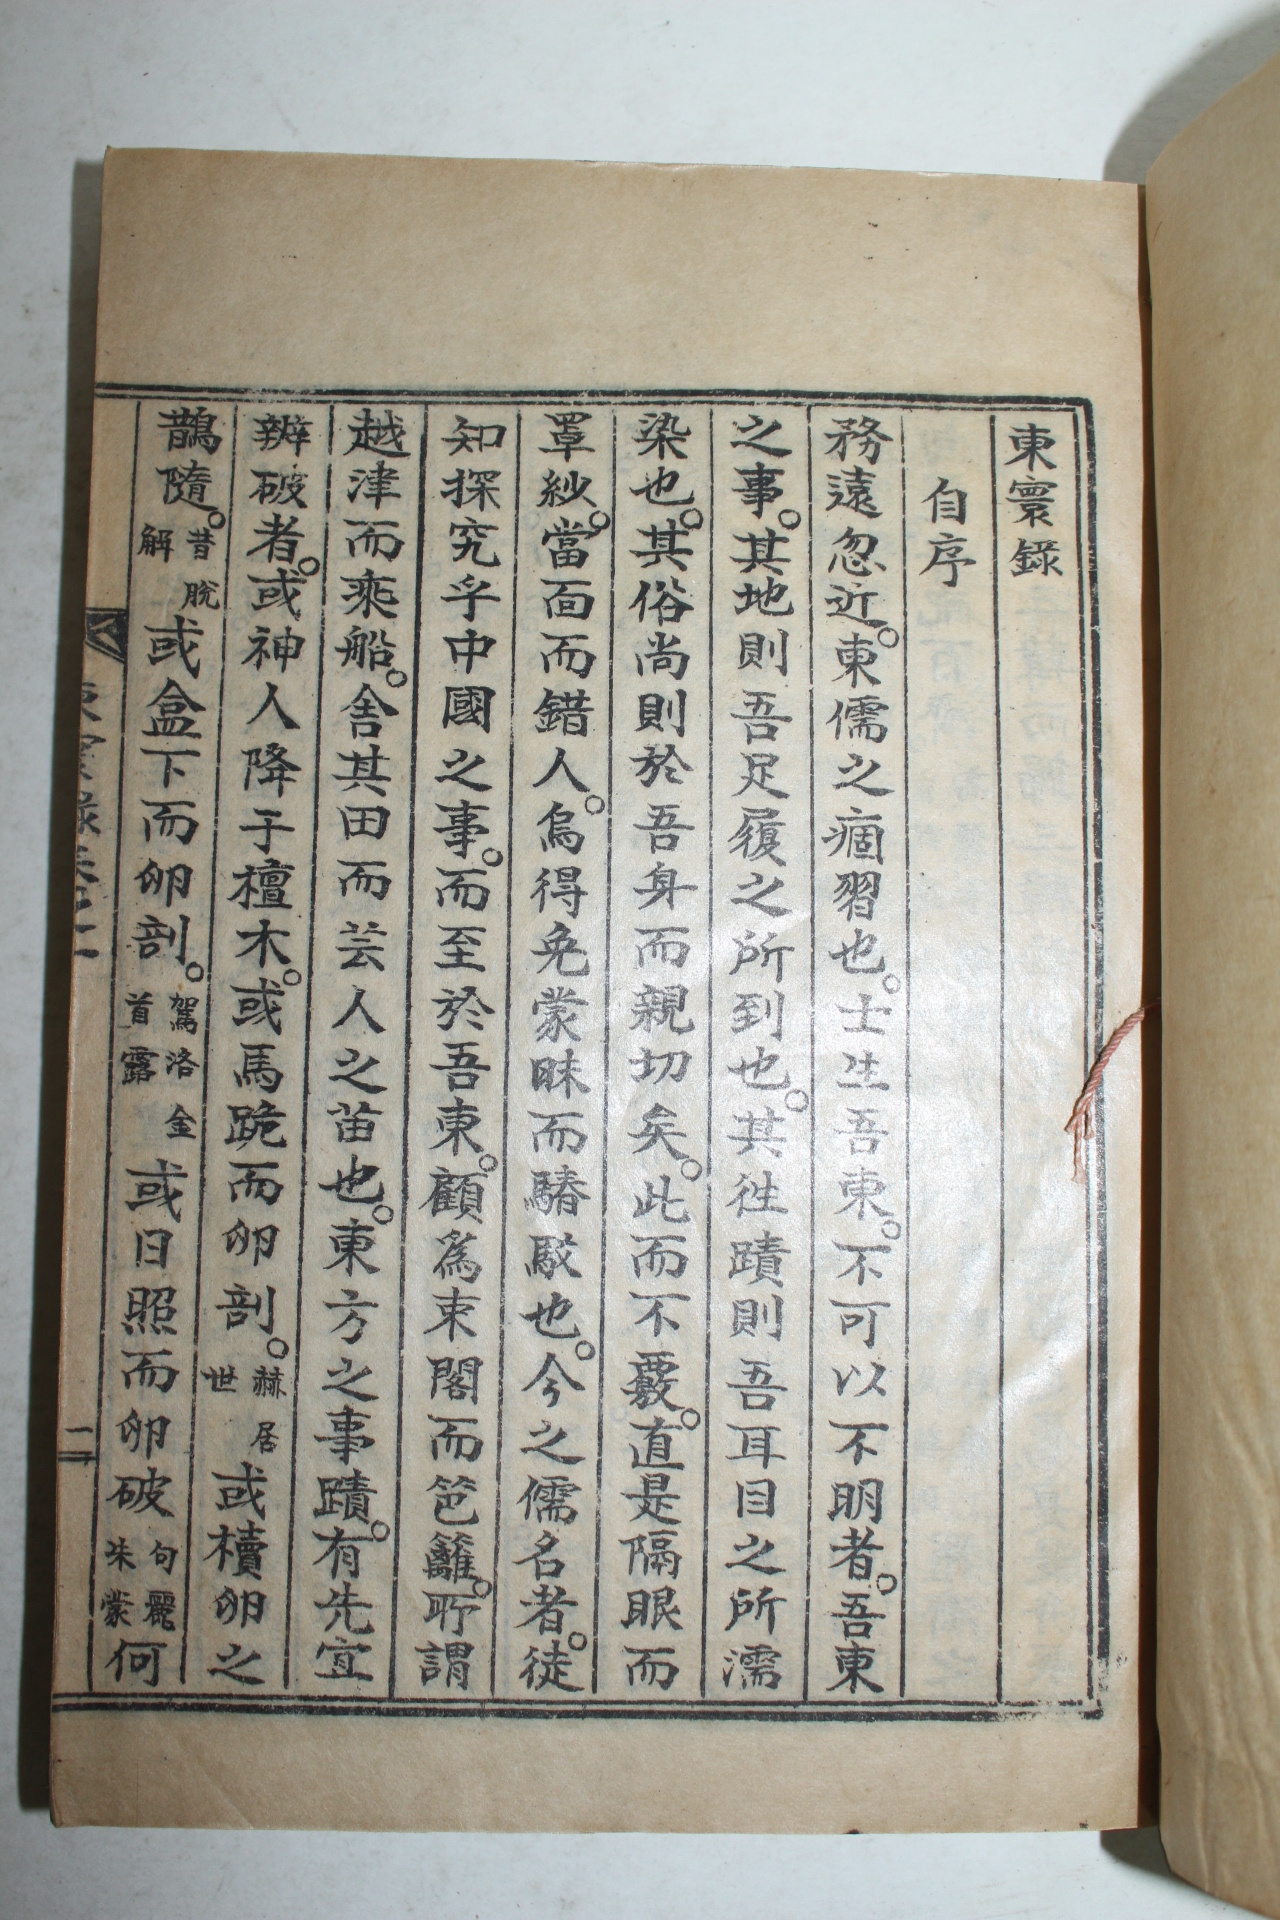 東寰錄
自序
務遠忽近。東儒之痼習也。士生吾東。不可以不明者。吾東
之事。其地則吾足履之所到也。其往蹟則吾耳目之所濡
染也。其俗尚則於吾身而親切矣。此而不覈。直是隔眼而
罩紗。當面而錯人。烏得免蒙昧而䮞駁也。今之儒名者。徒
知探究乎中國之事。而至於吾東。顧爲束閣而笆籬。所謂
越津而乘船。舍其田而芸人之苗也。東方之事蹟。有先宜
辨破者。或神人降于檀木。或馬跪而卵剖。赫居世或櫝卵之
鵲隨。昔脫解或盒下而卵剖。駕洛金首露或日照而卵破句麗朱蒙何
東寰錄卷之一
一